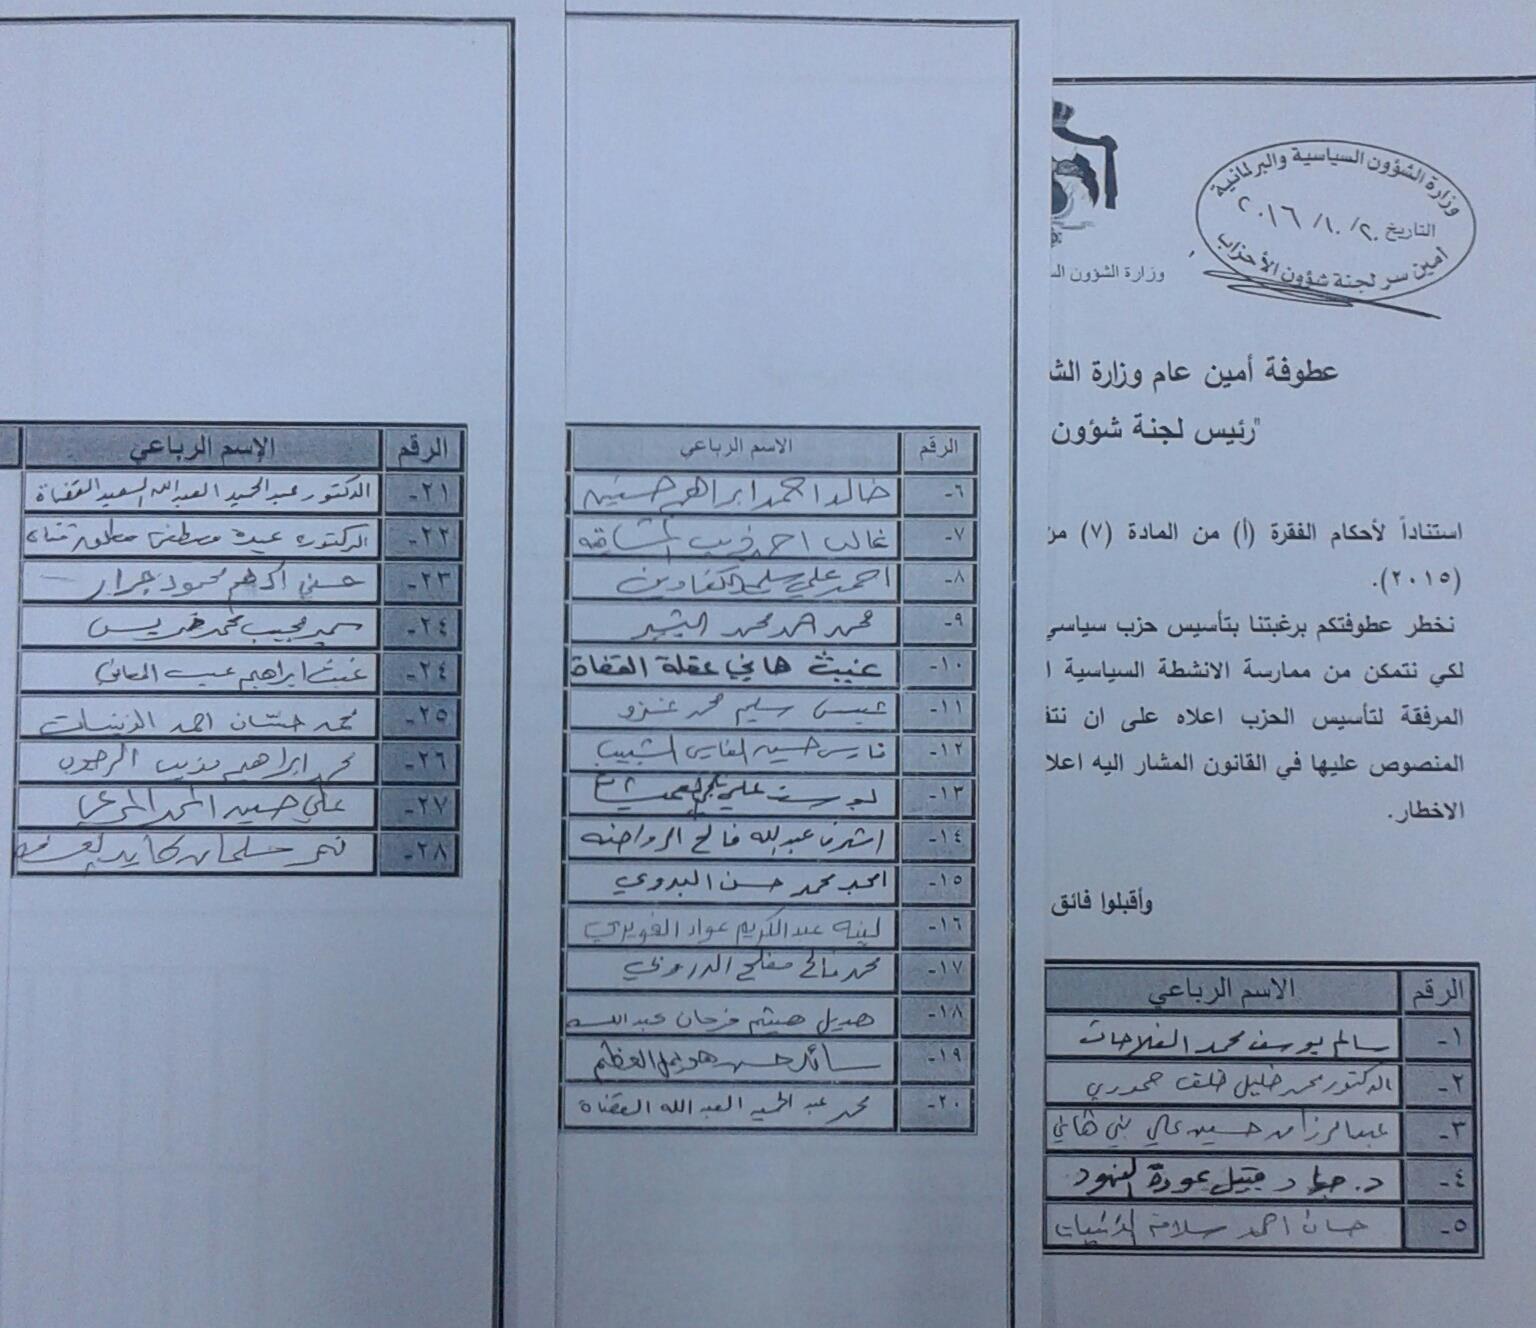 وزارة الشؤون السياسية والبرلمانية
التاريخ ٢٠١٦/١٠/٢٠
أمين سر لجنة شؤون الأحزاب
وزارة الشؤون
عطوفة أمين عام وزارة
"رئيس لجنة شؤون
استناداً لأحكام الفقرة (أ) من المادة (٧) من
(٢٠١٥).
نخطر عطوفتكم برغبتنا بتأسيس حزب سياسي
لكي نتمكن من ممارسة الانشطة السياسية
المرفقة لتأسيس الحزب اعلاه على ان
المنصوص عليها في القانون المشار اليه
الاخطار.
وأقبلوا فائق
الرقم الاسم الرباعي
١- سالم يوسف محمد الفلاحات
٢- الدكتور محمد خليل خلف حموري
٣- حسين علي بني هاني
٤- د. عودة
٥- حسان احمد سلامة الذنيبات
الرقم الاسم الرباعي
٦- خالد احمد ابراهيم حسنين
٧- غالب احمد المشاقبه
٨- احمد علي الكفاوين
٩- محمد احمد محمد البشير
١٠- غيث هاني عقلة القضاة
١١- سليم محمد غزو
١٢- فارس حسين الفارس الشبيب
١٣- علي
١٤- اشرف عبدالله فالح الرواضنه
١٥- امجد محمد حسن البدوي
١٦- لينه عبدالكريم عواد الغويري
١٧- محمد فالح مفلح
١٨- هديل هيثم فرحان عبدالله
١٩- سائد حسن العظم
٢٠- محمد عبد الحميد العبدالله القضاة
الرقم الإسم الرباعي
٢١- الدكتور عبدالحميد العبدالله السعيد القضاة
٢٢- الدكتوره عيدة مصطفى مطلق قناة
٢٣- حسني ادهم محمود جرار
٢٤- سمير محمد
٢٤- غيث ابراهيم المعاني
٢٥- محمد حسان احمد الذنيبات
٢٦- محمد ابراهيم
٢٧- علي حسين
٢٨- نمر سلمان كايد